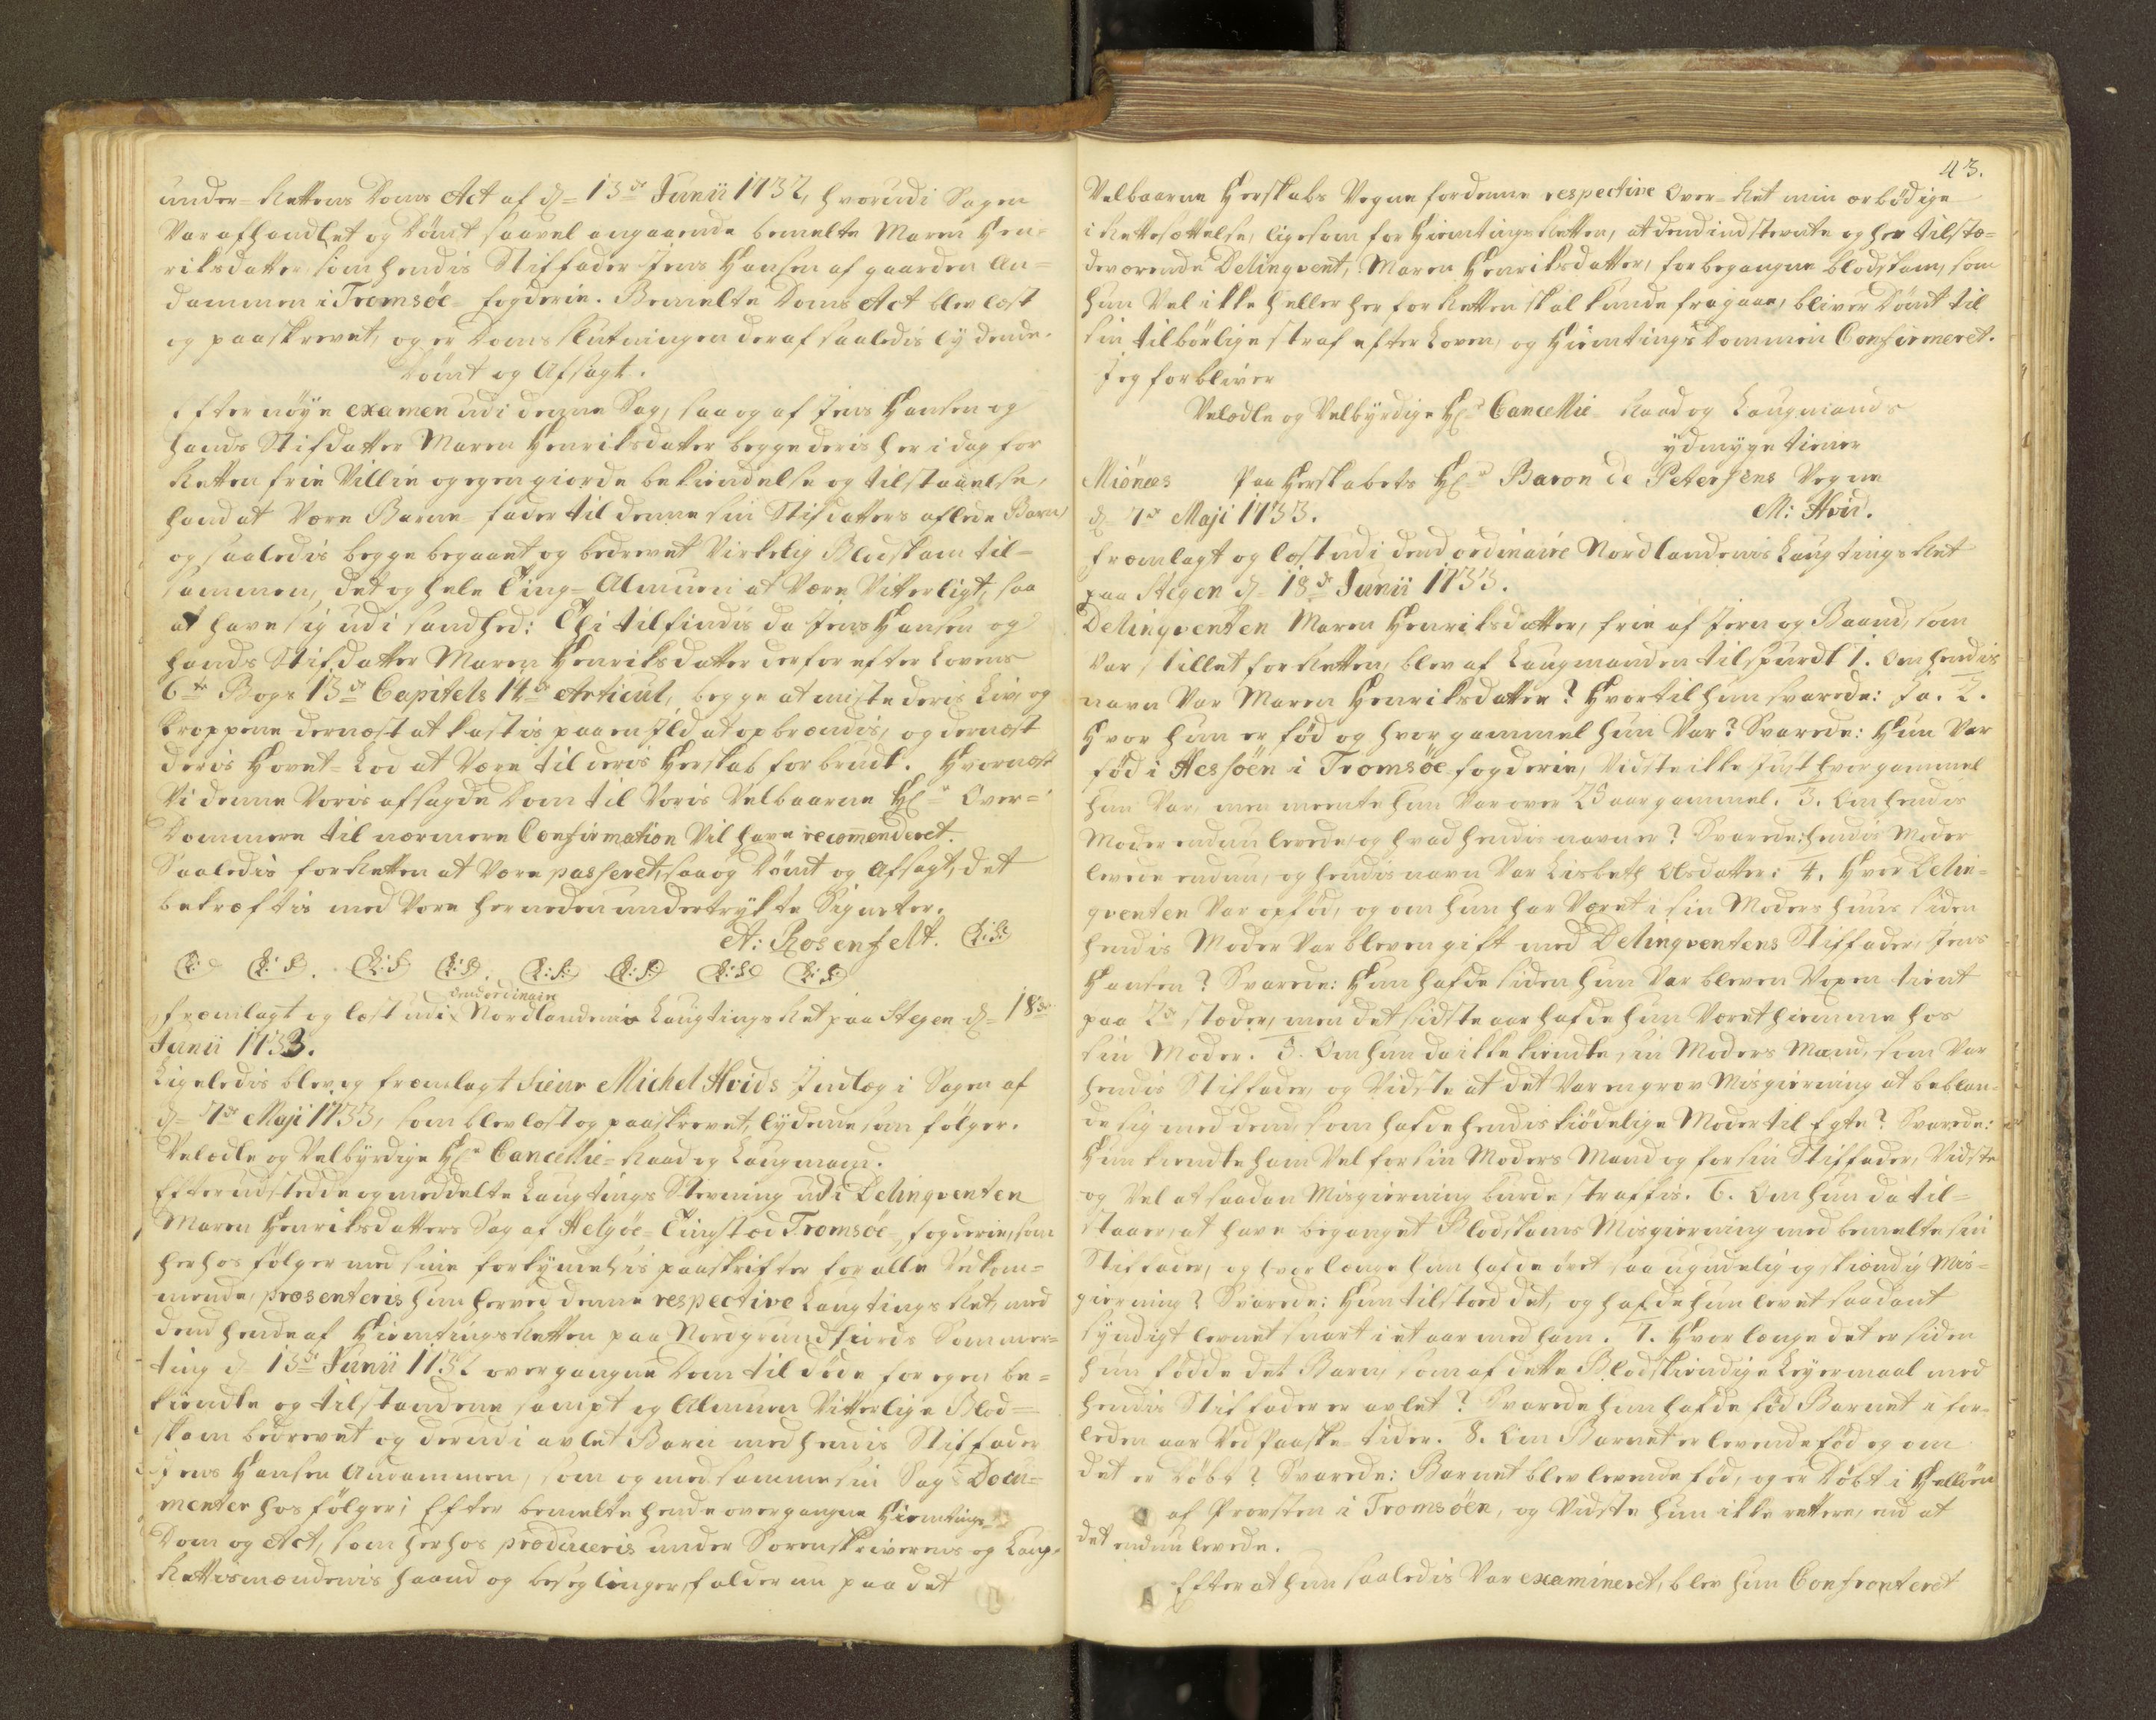 under-Rettens Doms Act af d= 13de Junii 1732, hvorudi Sagen
Var afhandlet og Dømt saavel angaaende bemelte Maren Hen-
riksdatter som hendis Stiffader Jens Hansen af gaarden An-
dammen i Tromsøe-fogderie. Bemelte Doms Act blev læst
og paaskrevet, og er Doms slutningen deraf saaledis lydende.
Dømt og Afsagt.
Efter nøye examen udi denne Sag, saa og af Jens Hansen og
hands Stifdatter Maren Henriksdatter begge deris her i dag for
Retten frie Villie og egen giorde bekiendelse og tilstaaelse,
hand at Være Barne-fader til denne sin Stifdatters aflede Barn,
og saaledis begge begaaet og bedrevet Virkelig Blodskam til-
sammen, det og hele Ting-Almuen at Være Vitterligt, saa
at have sig udi sandhed: Thi tilfindis da Jens Hansen og
hands Stifdatter Maren Henriksdatter derfor efter Lovens
6te Bogs 13de Capitels 14de Articul, begge at miste deris Liv, og
Kroppene dernæst at kastis paa en Ild at opbrændis, og dernæst
deris Hovet-Lod at Være til deris Herskab forbrudt. Hvornæst
Vi denne Voris afsagde Dom til Voris Velbaarne Hr Over-
Dommere til nærmere Confirmation Vil have recommenderet.
Saaledis for Retten at Være passeret, saa og Dømt og Afsagt, det
bekræftis med Vore herneden undertrykte Signeter.
A: Rosenfelt. (L:S:)
(L:S) (L:S). (L:S) (L:S). (L:S:) (L:S:) (L:S:) (L:S:)
dend ordinaire
Fremlagt og læst udi Nordlandenis Laugtings Ret paa Stegen d= 18de
Junii 1733.
Ligeledis blev og fremlagt Sieur Michel Hvids Indlæg i Sagen af
d= 7de Maji 1733, som blev læst og paaskrevet, lydende som følger.
Velædle og Velbyrdige Hr Cancellie-Raad og Laugmand.
Efter udstedde og meddelte Laugtings Stevning udi Delinqventen
Maren Henriksdatters Sag af Helgøe-Tingsted Tromsøe-fogderie, som
herhos følger med sine forkyndelsis paaskrifter for alle Vedkom-
mende, præsenteris hun herved denne respective Laugtings Ret, med
dend hende af Hiemtings Retten paa Nordgrundfiords Sommer-
ting d= 13de Junii 1732 overgangne Dom til døde for egen be-
kiendte og tilstandene sampt og Almuen Vitterlige Blod-
skam bedrevet og derudi avlet Barn med hendis Stiffader
Jens Hansen Andammen, som og med samme sin Sags Docu-
menter hos følger; Efter bemelte hende overgangne Hiemtings
Dom og Act, som herhos produceris under Sorenskriverens og Laug-
Rettismændenis haand og beseglinger, falder nu paa det
43.
Velbaarne Herskabs Vegne for denne respective Over-Ret min ærbødige
i Rettesættelse, ligesom for Hiemtings Retten, at dend indstevnte og her tilstæ-
deværende Delinqvent, Maren Henriksdatter, for begangne blodskam, som
hun Vel ikke heller her for Retten skal kunde fragaae, bliver Dømt til
sin tilbørlige straf efter Loven, og Hiemtings Dommen Confirmeret.
Jeg forbliver
Velædle og Velbyrdige Hr Cancellie Raad og Laugmands
ydmyge tiener
Miønæs Paa Herskabets Hr Baron de Petersens Vegne
d 7de Maji 1733. M: Hvid.
Fremlagt og læst udi dend ordinaire Nordlandenis Laugtings Ret
paa Stegen d= 18de Junii 1733.
Delinqventen Maren Henriksdatter, frie af Jern og Baand, som
Var stillet for Retten, blev af Laugmanden tilspurdt 1. Om hendis
navn Var Maren Henriksdatter? Hvortil hun svarede: Ja. 2.
Hvor hun er fød og hvor gammel hun Var? Svarede: Hun Var
fød i Hessøen i Tromsøe-fogderie, Vidste ikke just hvor gammel
hun Var, men meente hun Var over 20 aar gammel. 3. Om hendis
Moder endnu levede, og hvad hendis navn er? Svarede: hendis Moder
levede endnu, og hendis navn Var Lisbeth Olsdatter: 4. Hvor Delin-
qventen Var opfød, og om hun har Været i sin Moders huus siden
hendis Moder Var bleven gift med Delinqventens Stiffader, Jens
Hansen? Svarede: Hun hafde siden hun Var bleven Voxen tient
paa 2de stæder, men det sidste aar hafde hun Været hiemme hos
sin Moder. 5. Om hun da ikke kiendte sin Moders Mand, som Var
hendis Stiffader, og Vidste at det Var en grov Misgierning at beblan-
de sig med dend, som hafde hendis kiødelige Moder til Egte? Svarede:
Hun kiendte ham Vel for sin Moders Mand og for sin Stiffader, Vidste
og Vel at saadan Misgierning burde straffis. 6. Om hun da til-
staaer, at have beganget Blodskams Misgierning med bemelte sin
Stiffader, og hvor længe hun hafde øvet saa ugudelig og skiændig Mis-
gierning? Svarede: Hun tilstoed det, og hafde hun levet saadant
syndigt levnet snart i et aar med ham. 7. Hvor længe det er siden
hun fødde det Barn, som af dette Blodskiendige Leyermaal med
hendis Stiffader er avlet? Svarede hun hafde fød Barnet i for-
leden aar Ved Paaske tider. 8. Om Barnet er levende fød og om
det er Døbt? Svarede: Barnet blev levende fød, og er Døbt i Helløen
af Provsten i Tromsøen, og Vidste hun ikke rettere, end at
det endnu levede.
Efter at hun saaledis Var examineret, blev hun Confronteret